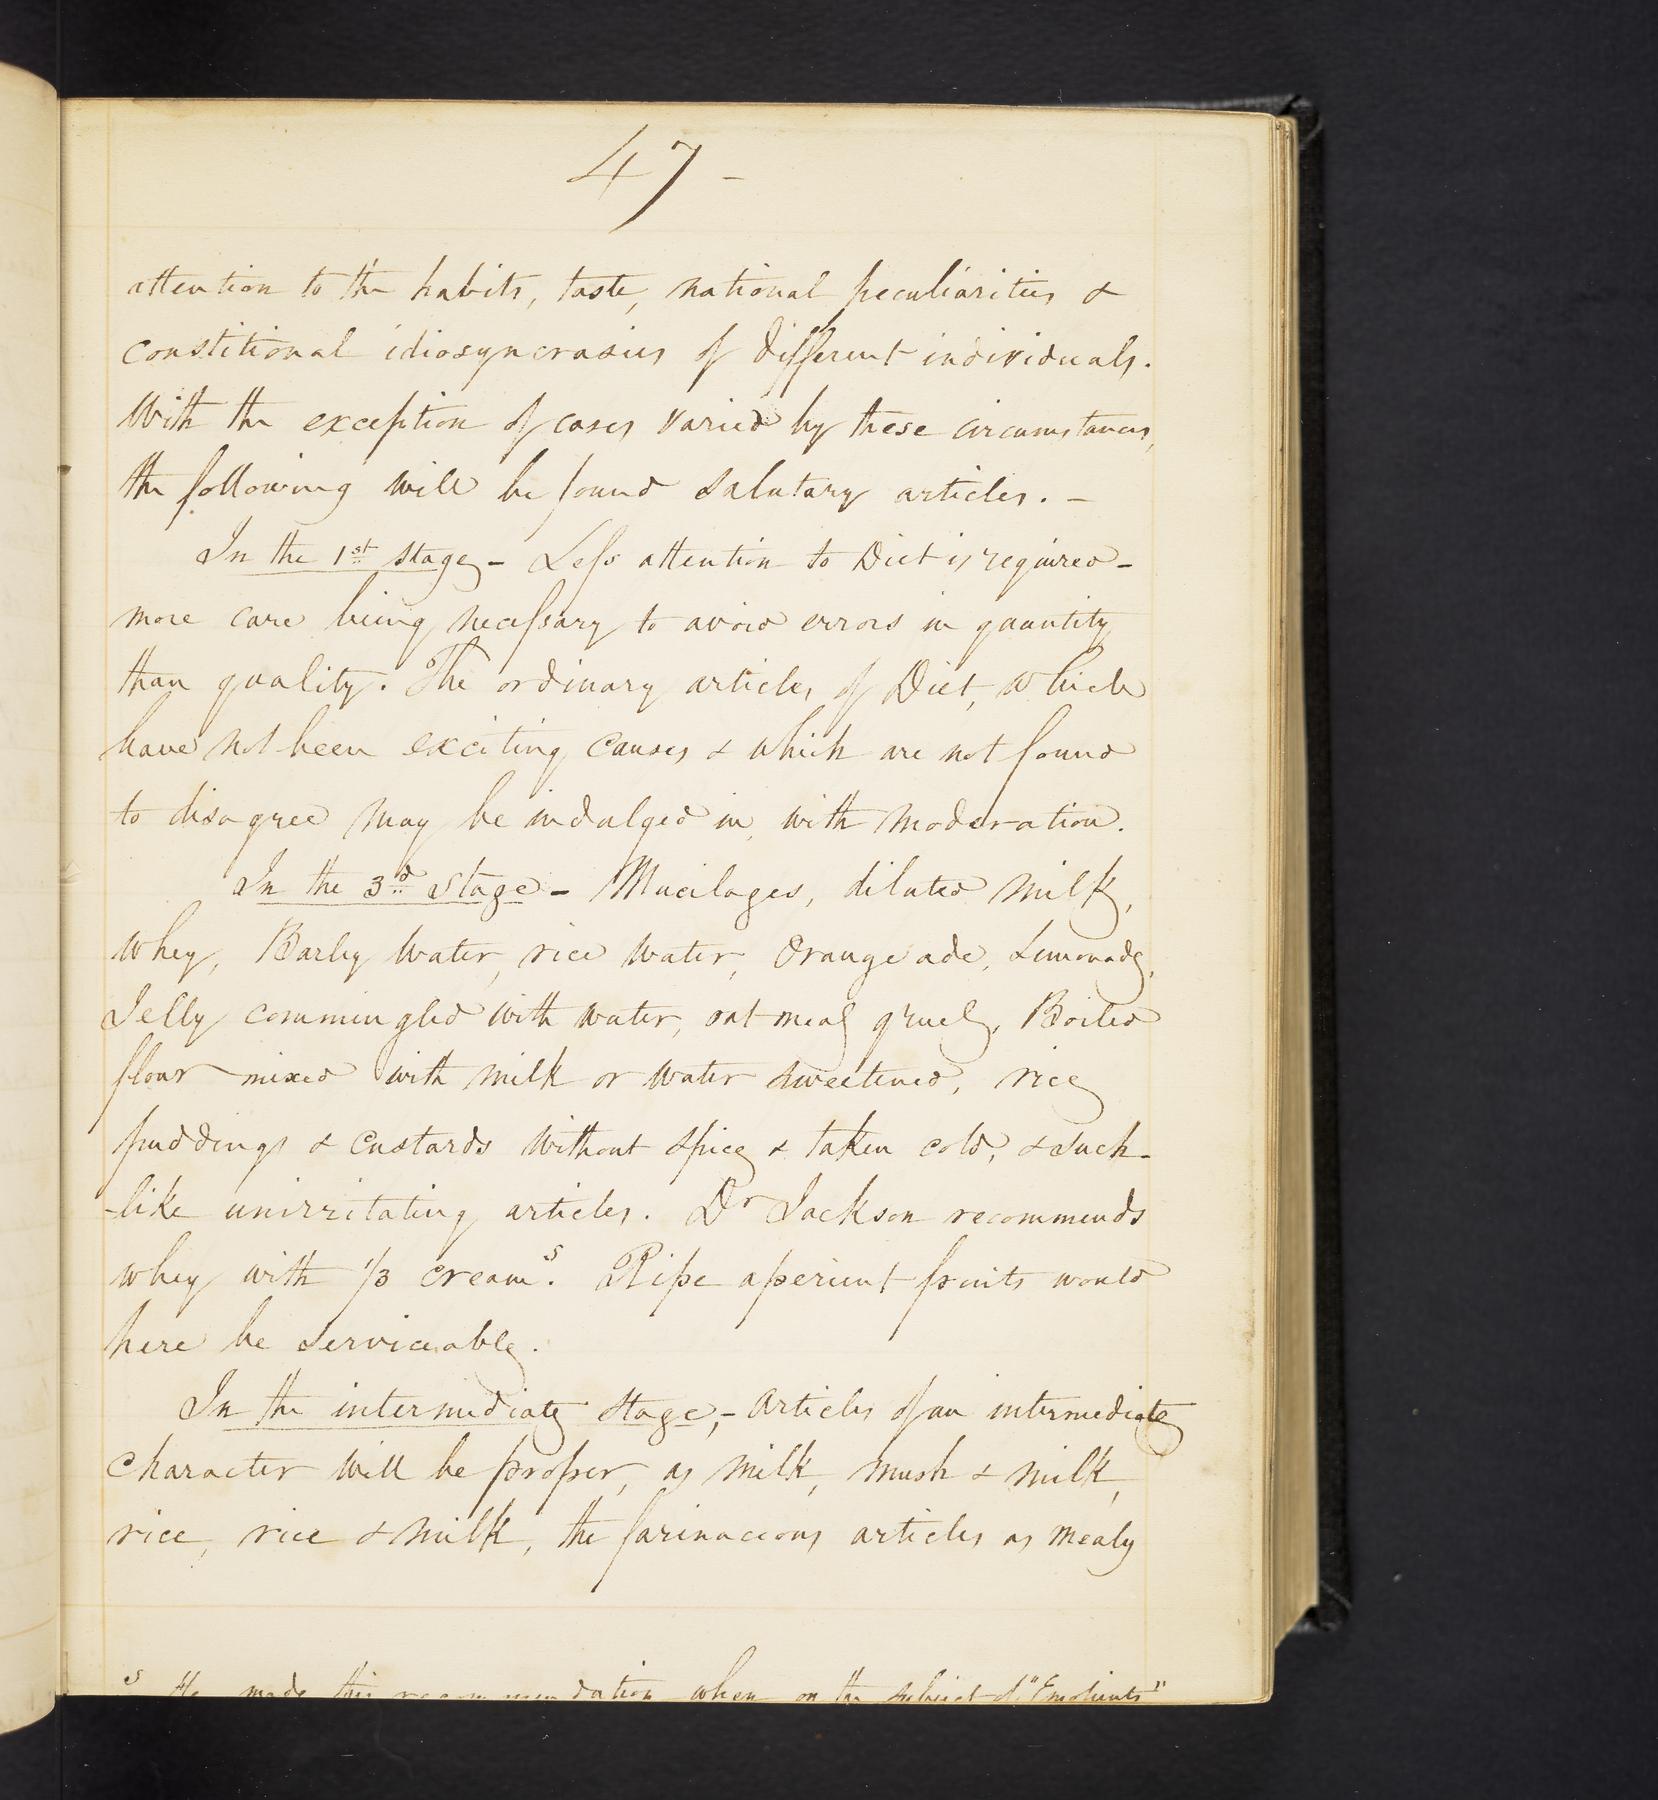 47 -
attention to the habits, taste, national peculiarities &
constitional idiosyncrasies of different individuals.
With the exception of cases varied by these circumstances,
the following will be found salutary articles. -
In the 1st stage - Less attention to Diet is required -
more care being necessary to avoid errors in quantity
than quality. The ordinary articles of Diet, which
have not been exciting causes & which are not found
to disagree may be indulged in, with moderation.
In the 3d Stage - Mucilages, diluted milk,
whey, Barley water, rice water, Orangeade, Lemonade,
Jelly commingled with water, oatmeal gruel, Boiled
flour mixed with milk or water sweetened, rice
puddings & custards without spice & taken cold, & such-
-like unirritating articles. Dr Jackson recommends
whey with 1/3 cream s. Ripe aperient fruits would
here be serviceable.
In the intermediate stage, - articles of an intermediate
character will be proper, as milk, mush & milk,
rice, rice & milk, the farinaceous articles as mealy
s He made this recommendation when on the subject of "Emolients"